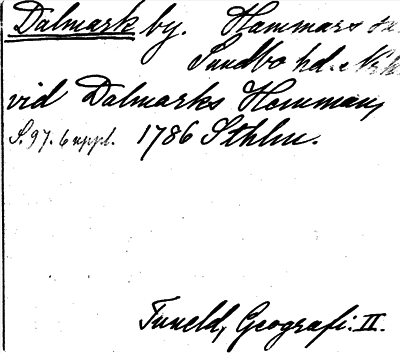 Dalmark by. Hammars
Sundbo hd.
vid Dalmarks Hemman,
S. 97. 6 uppl. 1786 Sthlm.
Tuneld, Geografi. II.